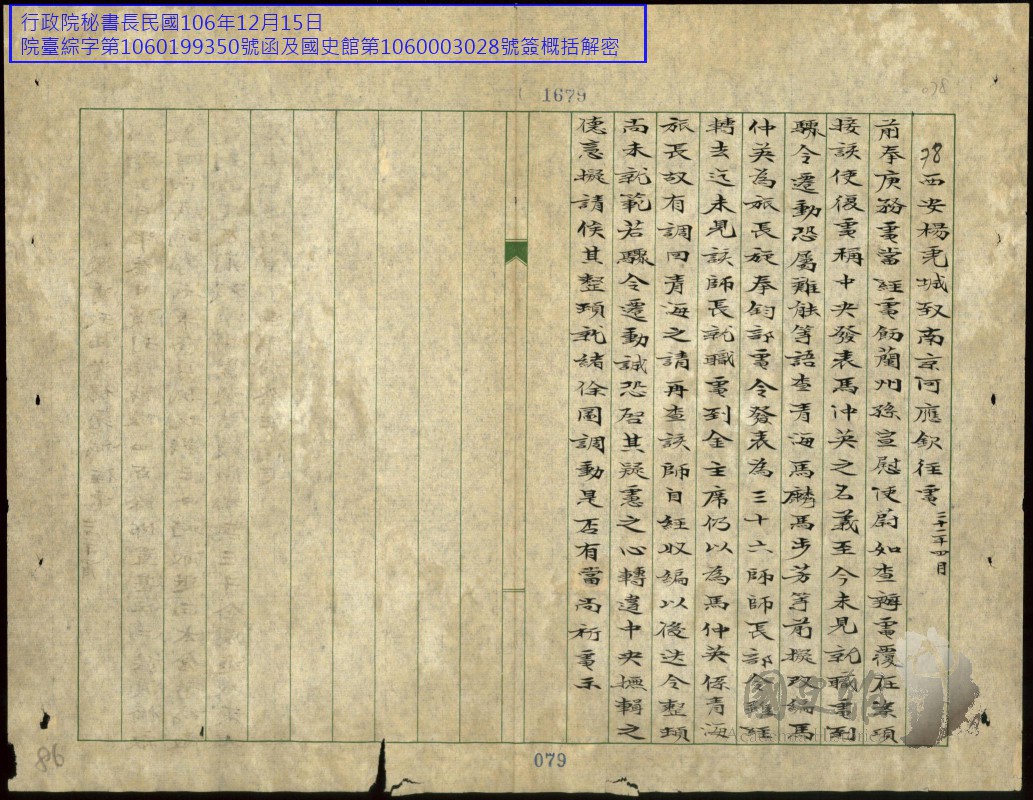 行政院秘書長民國106年12月15日
院臺綜字第1060199350號函及國史館第1060003028號簽概括解密
1679
78西安楊虎城致南京何應欽徑電 二十二年四月
前奉庚務電當經電飭蘭州孫宣慰使蔚如查辦電覆在案頃
接該使復電稱中央發表馬仲英之名義至今未見就職電到
驟令遷動恐屬難能等語查青海馬麟馬步芳等前擬改編馬
仲英為旅長旋奉鈞部電令發表為三十六師師長部令雖經
轉去迄未見該師長就職電到金主席仍以為馬仲英係青海
旅長故有調回青海之請再查該師自經收編以後迭令整頓
尚未就範若驟令遷動誠恐啓其疑慮之心轉違中央撫輯之
德意擬請俟其整頓就緒徐圖調動是否有當尚祈電示
079
國史館
Academia Historica